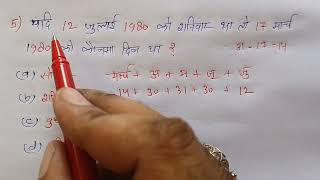 5) यदि 12 जुलाई 1980 को शनिवार था तो 17 मार्च
1980 को कौनसा दिन था ?
31-17=14
(a) मार्च + अ + म + जू + जु
(b) 14 + 30 + 31 + 30 + 12
(c)
(d)